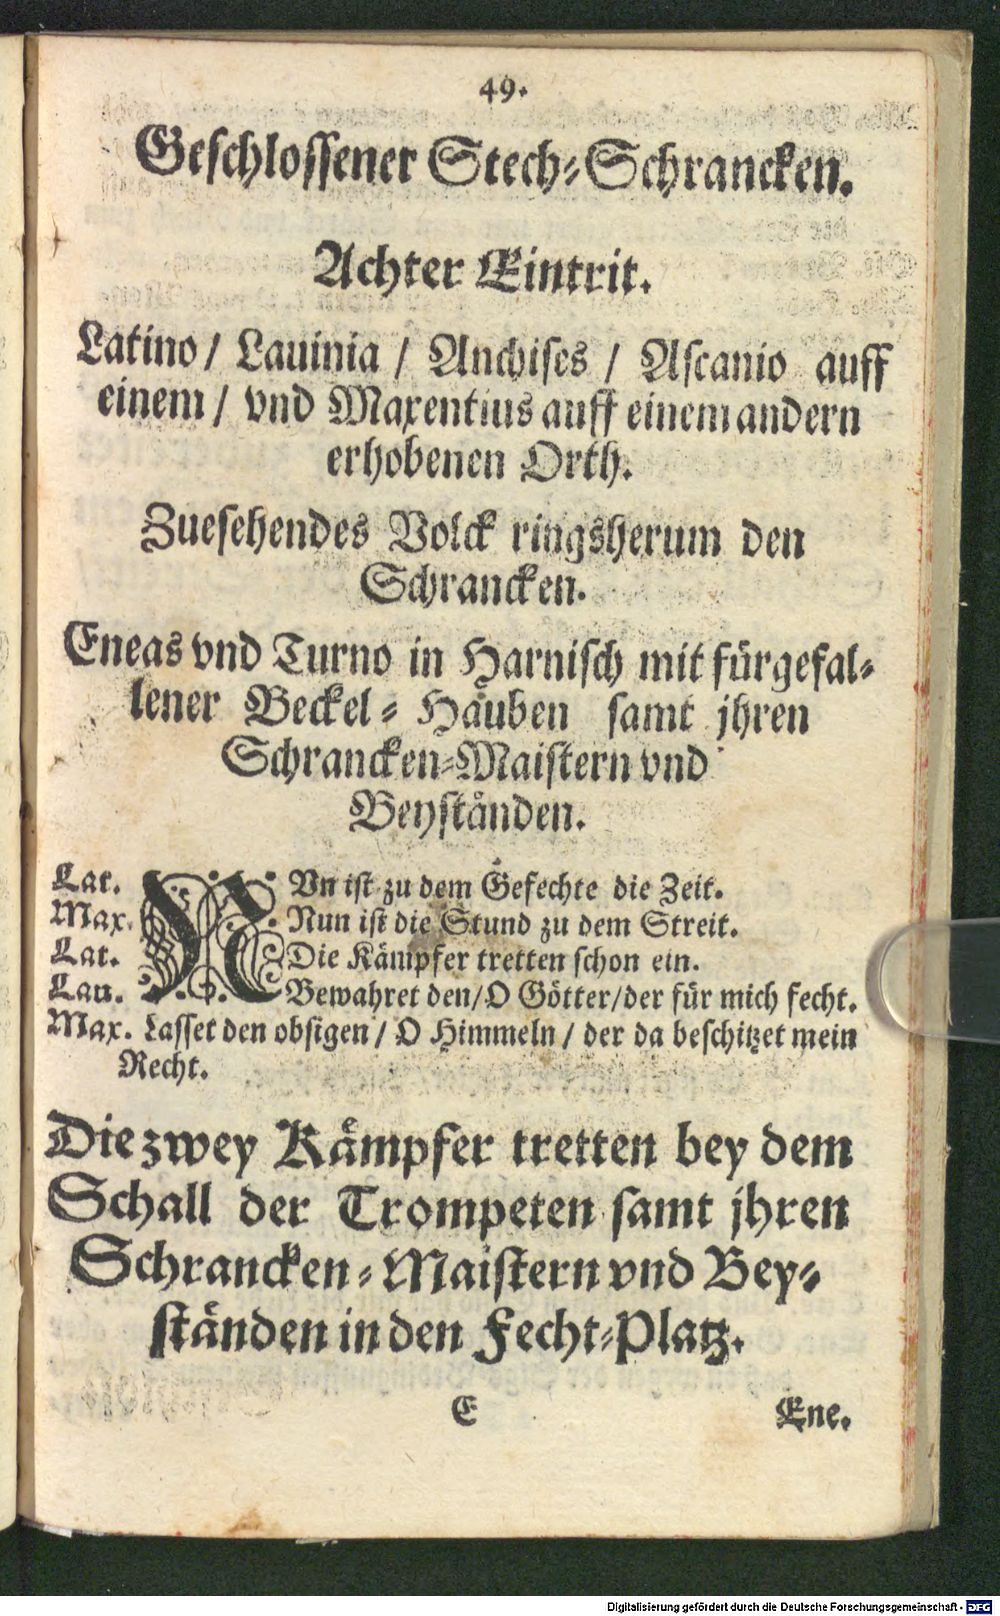 49.
Geschlossener Stech-Schrancken.
Achter Eintrit.
Latino / Lauinia / Anchises / Ascanio auff
einem / vnd Maxentius auff einem andern
erhobenen Orth.
Zuesehendes Volck ringsherum den
Schrancken.
Eneas vnd Turno in Harnisch mit fürgefal-
lener Beckel-Häuben samt jhren
Schrancken-Maistern vnd
Beyständen.
Lat. NVn ist zu dem Gefechte die Zeit.
Max. Nun ist die Stund zu dem Streit.
Lat. Die Kämpfer tretten schon ein.
Lau. Bewahret den/O Götter/der für mich fecht.
Max. Lasset den obsigen / O Himmeln / der da beschitzet mein
Recht.
Die zwey Kämpfer tretten bey dem
Schall der Trompeten samt jhren
Schrancken-Maistern vnd Bey-
ständen in den Fecht-Platz.
E Ene.
Digitalisierung gefördert durch die Deutsche Forschungsgemeinschaft - DFG